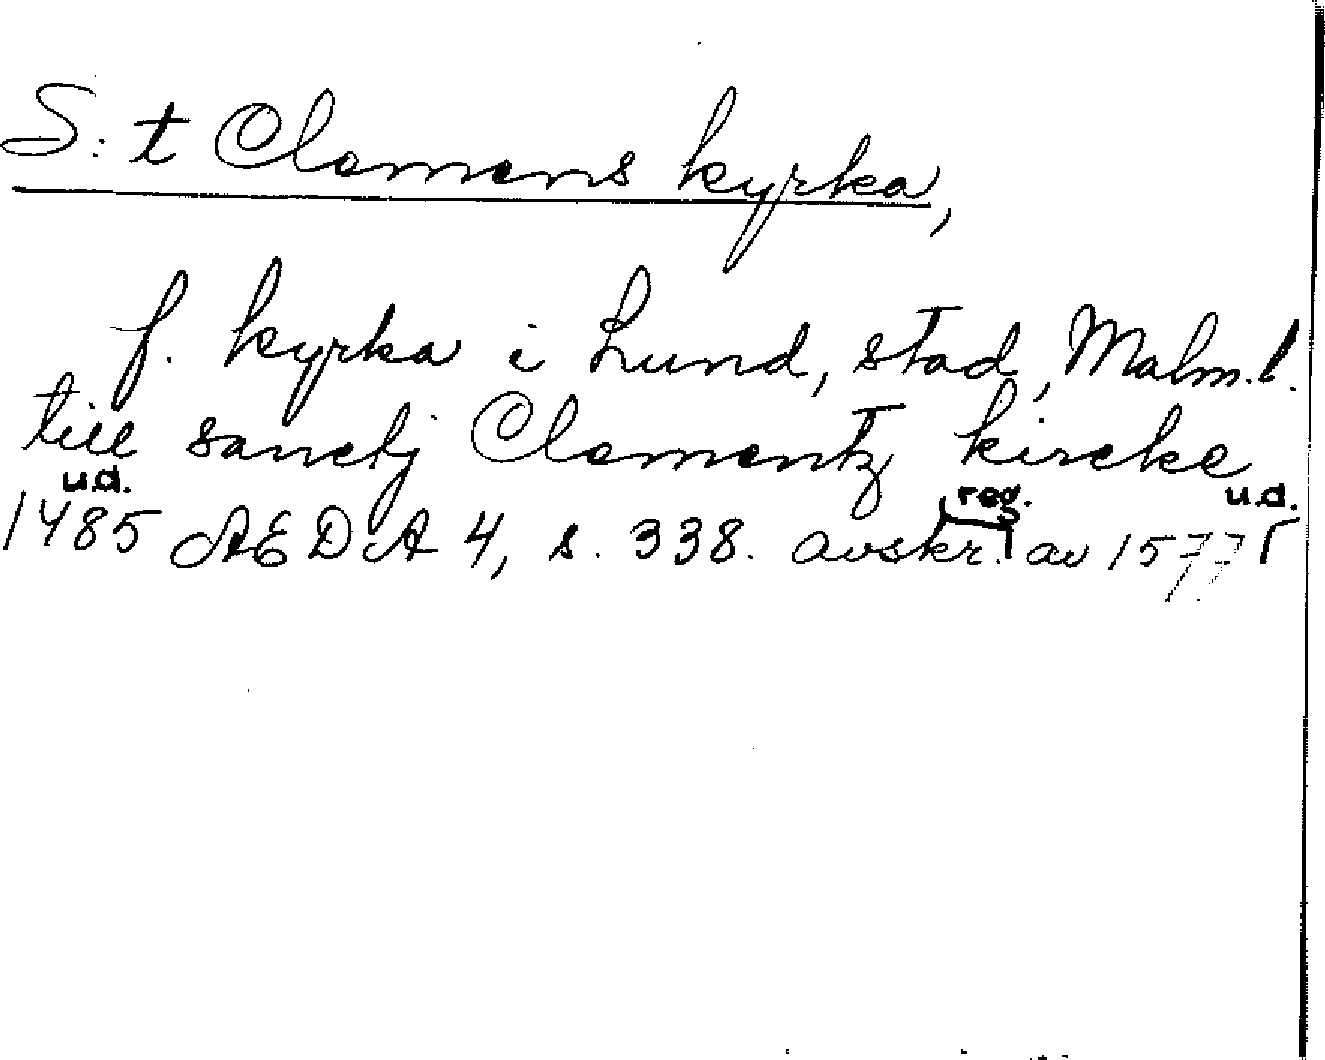 S:t Clemens kyrka,
f. kyrka i Lund, stad, Malm.l.
till sanctj Clementz kircke
u.d. reg. u.d.
1485 ÆDA 4, s. 338. avskr. av 1577